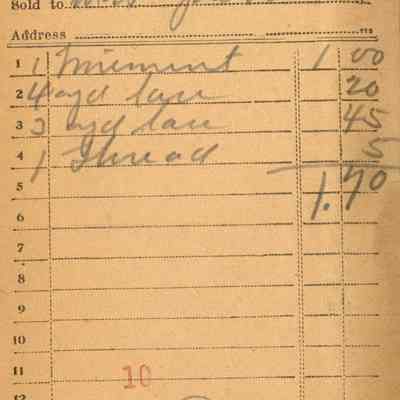 Sold to
Address
1 1 1 00
2 4 yd lace 20
3 3 yd lace 45
4 1 Thread 5
5 1.70
6
7
8
9
10
11 10
12